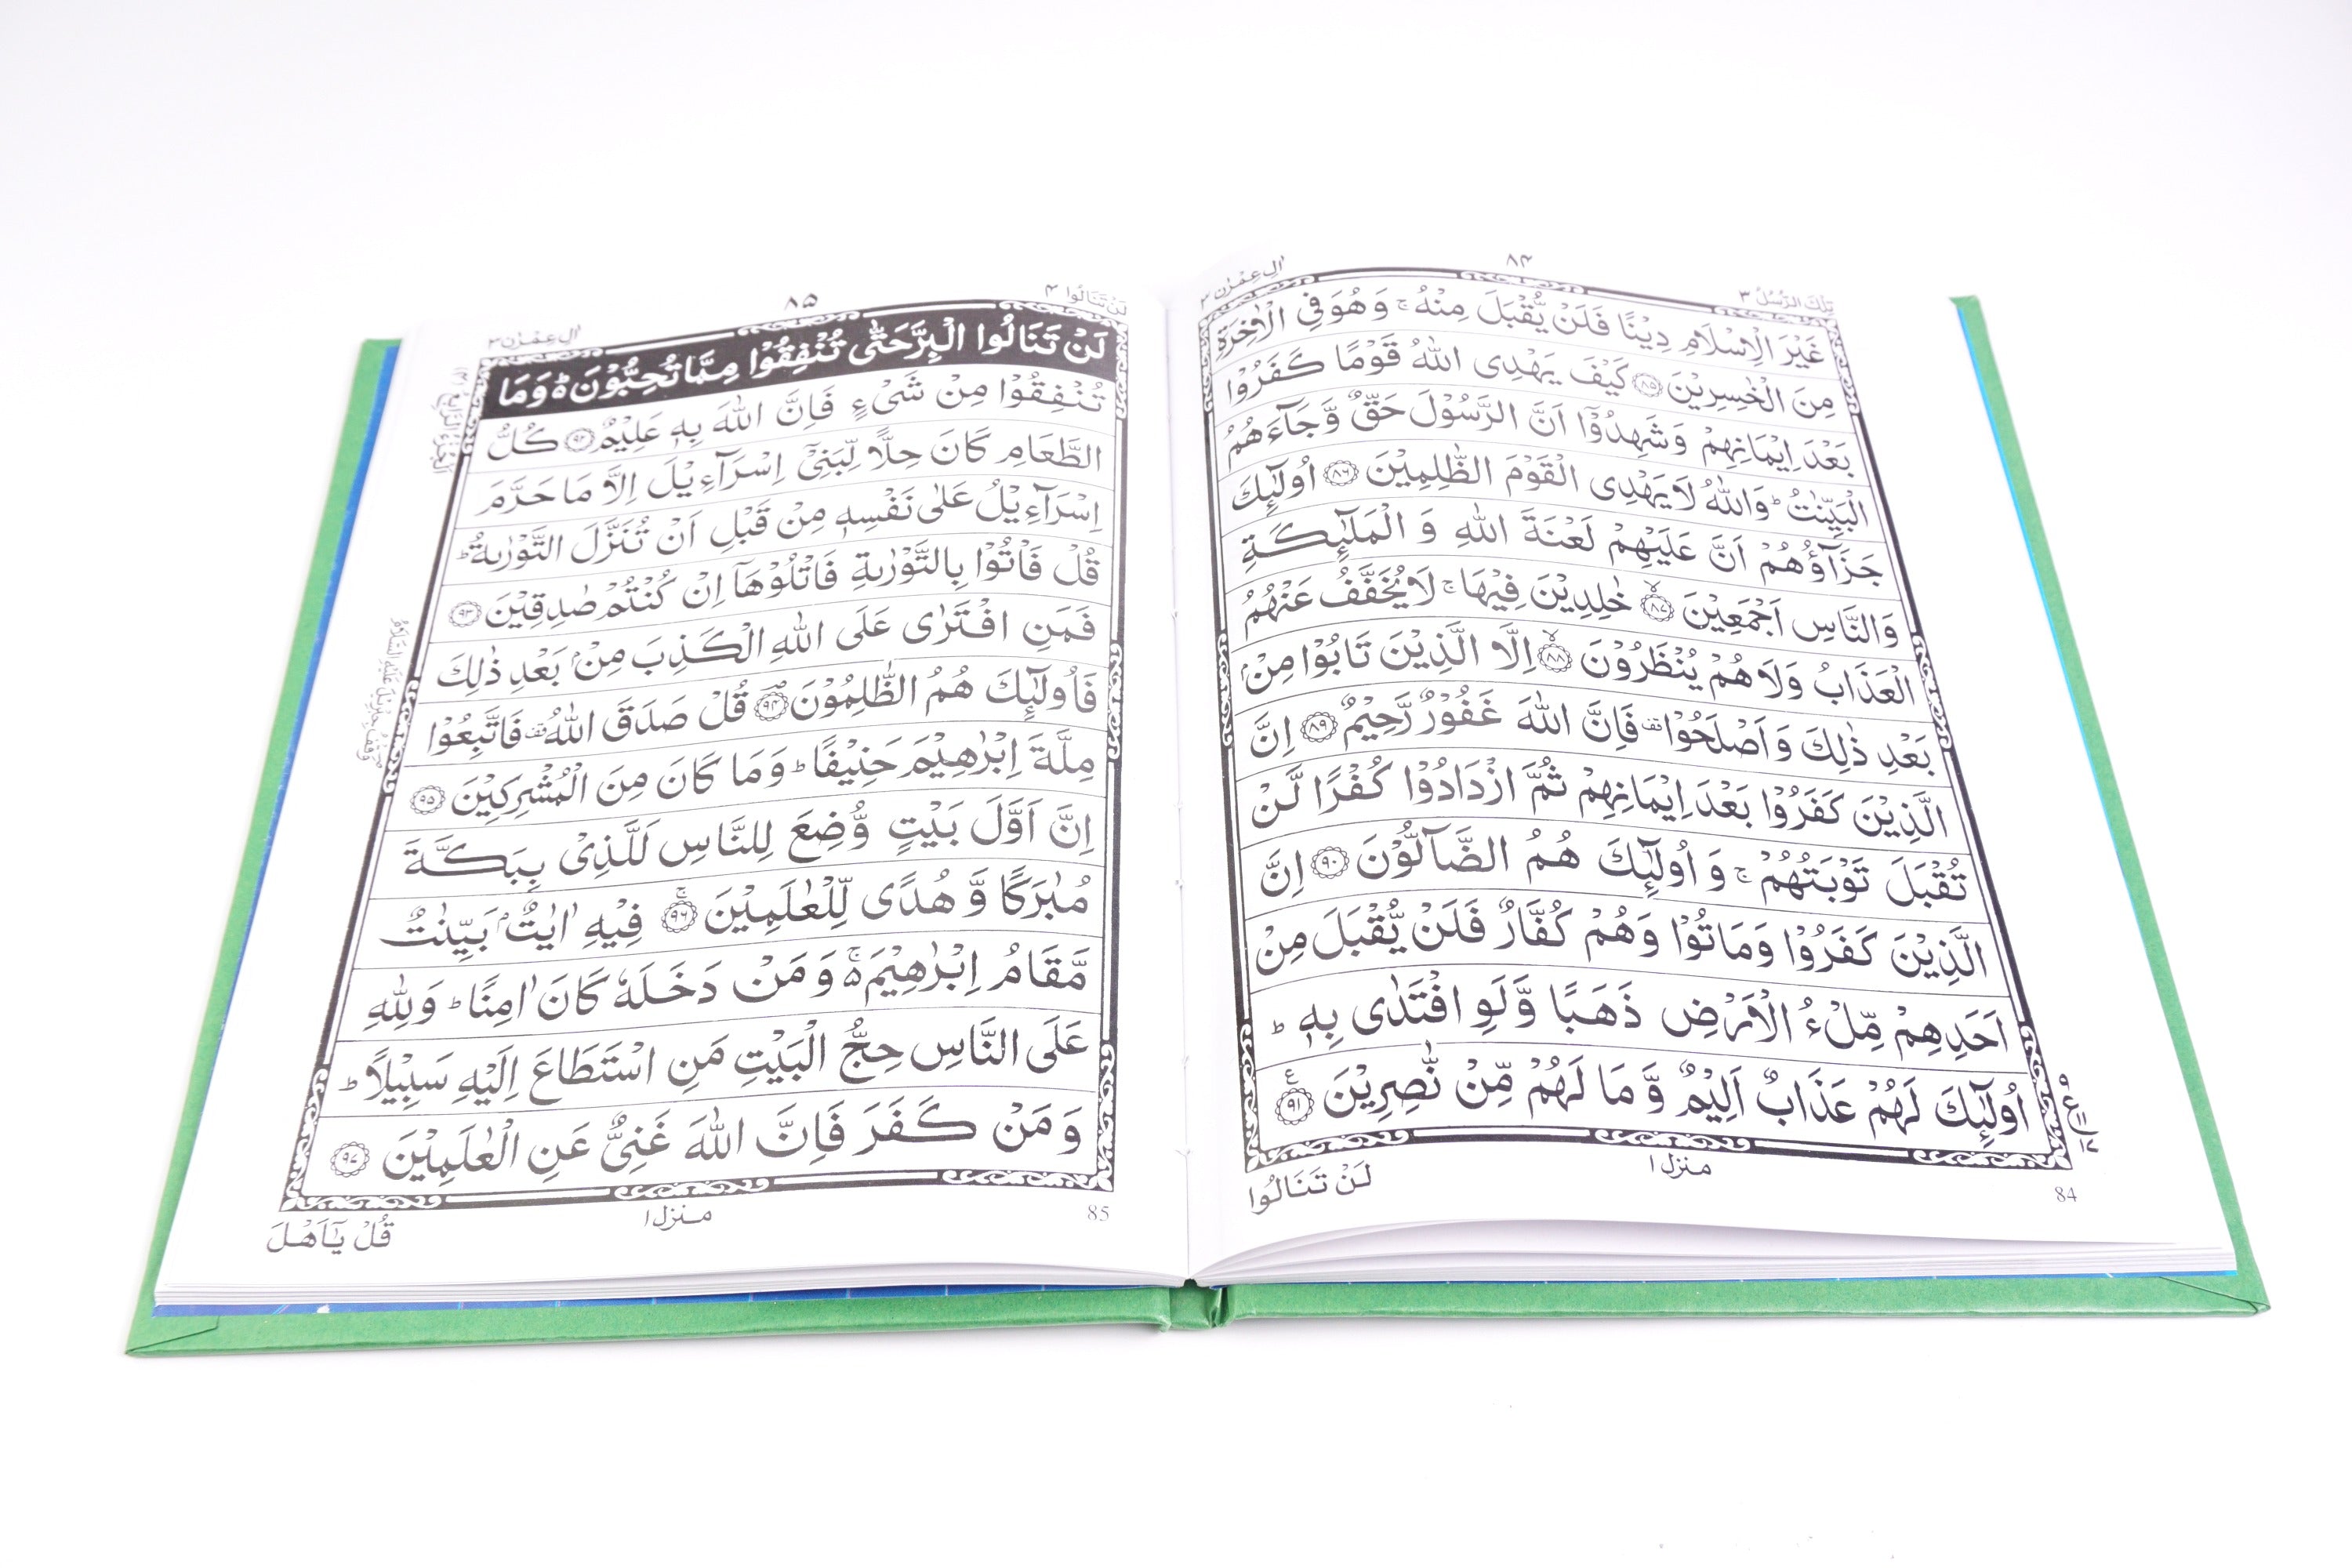 تِلْكَ الرُّسُلُ ٣
٨٤
اٰلِ عِمْرٰن ٣
غَيْرَ الْاِسْلَامِ دِيْنًا فَلَنْ يُّقْبَلَ مِنْهُ ۚ وَهُوَ فِى الْاٰخِرَةِ
مِنَ الْخٰسِرِيْنَ ﴿٨٥﴾ كَيْفَ يَهْدِى اللّٰهُ قَوْمًا كَفَرُوْا
بَعْدَ اِيْمَانِهِمْ وَشَهِدُوْٓا اَنَّ الرَّسُوْلَ حَقٌّ وَّجَآءَهُمُ
الْبَيِّنٰتُ ؕ وَاللّٰهُ لَا يَهْدِى الْقَوْمَ الظّٰلِمِيْنَ ﴿٨٦﴾ اُولٰٓئِكَ
جَزَآؤُهُمْ اَنَّ عَلَيْهِمْ لَعْنَةَ اللّٰهِ وَ الْمَلٰٓئِكَةِ
وَالنَّاسِ اَجْمَعِيْنَ ﴿٨٧﴾ۙ خٰلِدِيْنَ فِيْهَا ۚ لَا يُخَفَّفُ عَنْهُمُ
الْعَذَابُ وَلَا هُمْ يُنْظَرُوْنَ ﴿٨٨﴾ۙ اِلَّا الَّذِيْنَ تَابُوْا مِنْۢ
بَعْدِ ذٰلِكَ وَاَصْلَحُوْا قف فَاِنَّ اللّٰهَ غَفُوْرٌ رَّحِيْمٌ ﴿٨٩﴾ اِنَّ
الَّذِيْنَ كَفَرُوْا بَعْدَ اِيْمَانِهِمْ ثُمَّ ازْدَادُوْا كُفْرًا لَّنْ
تُقْبَلَ تَوْبَتُهُمْ ۚ وَ اُولٰٓئِكَ هُمُ الضَّآلُّوْنَ ﴿٩٠﴾ اِنَّ
الَّذِيْنَ كَفَرُوْا وَمَاتُوْا وَهُمْ كُفَّارٌ فَلَنْ يُّقْبَلَ مِنْ
اَحَدِهِمْ مِّلْءُ الْاَرْضِ ذَهَبًا وَّلَوِ افْتَدٰى بِهٖ ؕ
اُولٰٓئِكَ لَهُمْ عَذَابٌ اَلِيْمٌ وَّ مَا لَهُمْ مِّنْ نّٰصِرِيْنَ ﴿٩١﴾ع
منزل ١
لَنْ تَنَالُوا
84
لَنْ تَنَالُوا ٤
٨٥
اٰلِ عِمْرٰن ٣
لَنْ تَنَالُوا الْبِرَّ حَتّٰى تُنْفِقُوْا مِمَّا تُحِبُّوْنَ ۟ؕ وَمَا
تُنْفِقُوْا مِنْ شَىْءٍ فَاِنَّ اللّٰهَ بِهٖ عَلِيْمٌ ﴿٩٢﴾ كُلُّ
الطَّعَامِ كَانَ حِلًّا لِّبَنِىْٓ اِسْرَآءِيْلَ اِلَّا مَا حَرَّمَ
اِسْرَآءِيْلُ عَلٰى نَفْسِهٖ مِنْ قَبْلِ اَنْ تُنَزَّلَ التَّوْرٰىةُ ؕ
قُلْ فَاْتُوْا بِالتَّوْرٰىةِ فَاتْلُوْهَآ اِنْ كُنْتُمْ صٰدِقِيْنَ ﴿٩٣﴾
فَمَنِ افْتَرٰى عَلَى اللّٰهِ الْكَذِبَ مِنْۢ بَعْدِ ذٰلِكَ
فَاُولٰٓئِكَ هُمُ الظّٰلِمُوْنَ ﴿٩٤﴾ قُلْ صَدَقَ اللّٰهُ قف فَاتَّبِعُوْا
مِلَّةَ اِبْرٰهِيْمَ حَنِيْفًا ؕ وَمَا كَانَ مِنَ الْمُشْرِكِيْنَ ﴿٩٥﴾
اِنَّ اَوَّلَ بَيْتٍ وُّضِعَ لِلنَّاسِ لَلَّذِىْ بِبَكَّةَ
مُبٰرَكًا وَّ هُدًى لِّلْعٰلَمِيْنَ ﴿٩٦﴾ۚ فِيْهِ اٰيٰتٌۢ بَيِّنٰتٌ
مَّقَامُ اِبْرٰهِيْمَ ۬ۚ وَمَنْ دَخَلَهٗ كَانَ اٰمِنًا ؕ وَلِلّٰهِ
عَلَى النَّاسِ حِجُّ الْبَيْتِ مَنِ اسْتَطَاعَ اِلَيْهِ سَبِيْلًا ؕ
وَمَنْ كَفَرَ فَاِنَّ اللّٰهَ غَنِىٌّ عَنِ الْعٰلَمِيْنَ ﴿٩٧﴾
وقف جبريل عليه السلام
منزل ١
85
قُلْ يٰٓاَهْلَ